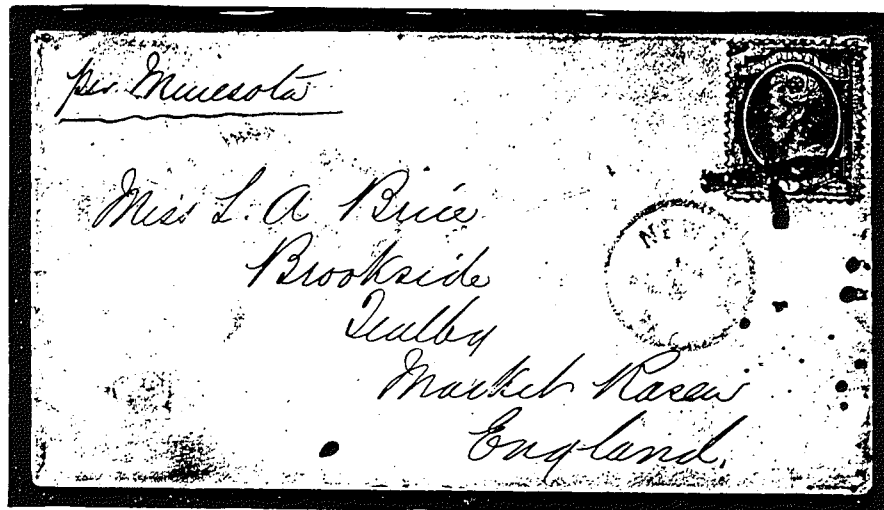 per Minesota
Miss L. A Brice
Brookside
Tealby
Market Rasen
England.
NEW